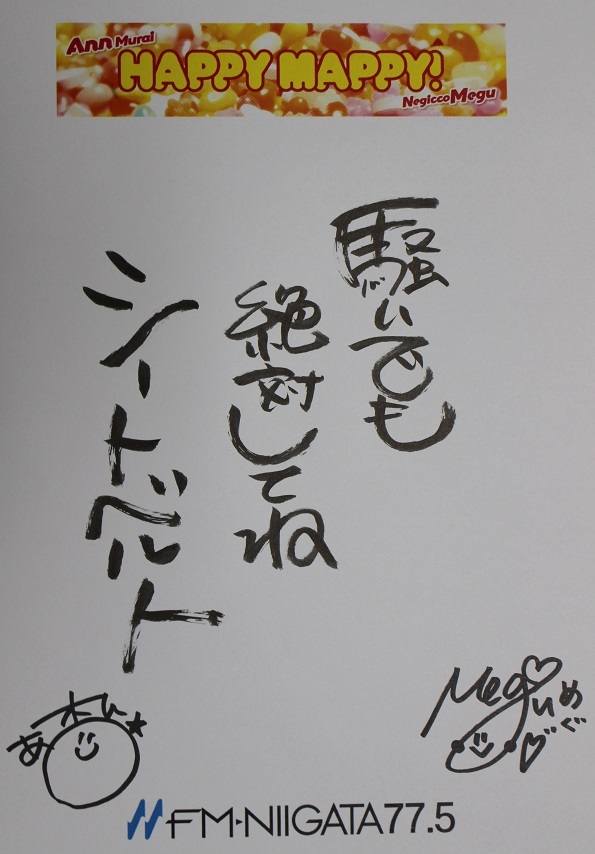 Ann Murai
HAPPY MAPPY!
Negicco Megu
騒いでも
絶対してね
シートベルト
Megu
FM-NIIGATA 77.5